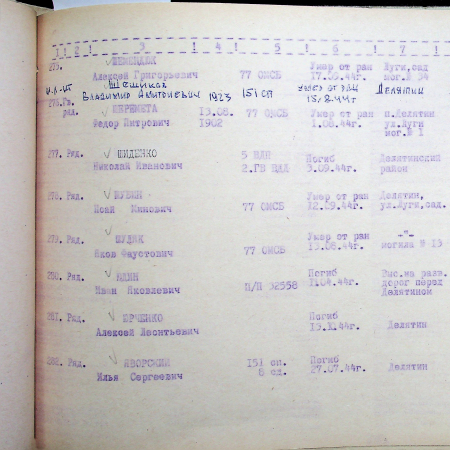 1 2 3 4 5 6 7
275. ШЕМЕНДЮК Умер от ран Луги, сад
Алексей Григорьевич 77 ОМСБ 17.09.44г. мог.№ 34
Владимир Антонович 1923 151 СП умер от ран Делятин
15.8.44г
276. Гв. ШЕРЕМЕТА 13.08. 77 ОМСБ Умер от ран п.Делятин
ряд. Федор Питрович 1902 1.08.44г. ул.Луги
мог.№ 1
277. Ряд. ШИДЕНКО 5 Погиб Делятинский
Николай Иванович 2.ГВ 3.09.44г. район
278. Ряд. Умер от ран Делятин,
Исай 77 ОМСБ 12.09.44г. ул.Луги, сад.
279. Ряд. Умер от ран -"-
Яков Фаустович 77 ОМСБ 13.08.44г. могила № 13
280. Ряд. ЮДИН Погиб Выс. на разв.
Иван Яковлевич П/П 32558 11.04.44г. дорог перед
Делятиной
281. Ряд. ЮРЧЕНКО Погиб
Алексей Леонтьевич 15.X.44г. Делятин
282. Ряд. ЯВОРСКИЙ 151 сп. Погиб
Илья Сергеевич 8 сд. 27.07.44г. Делятин